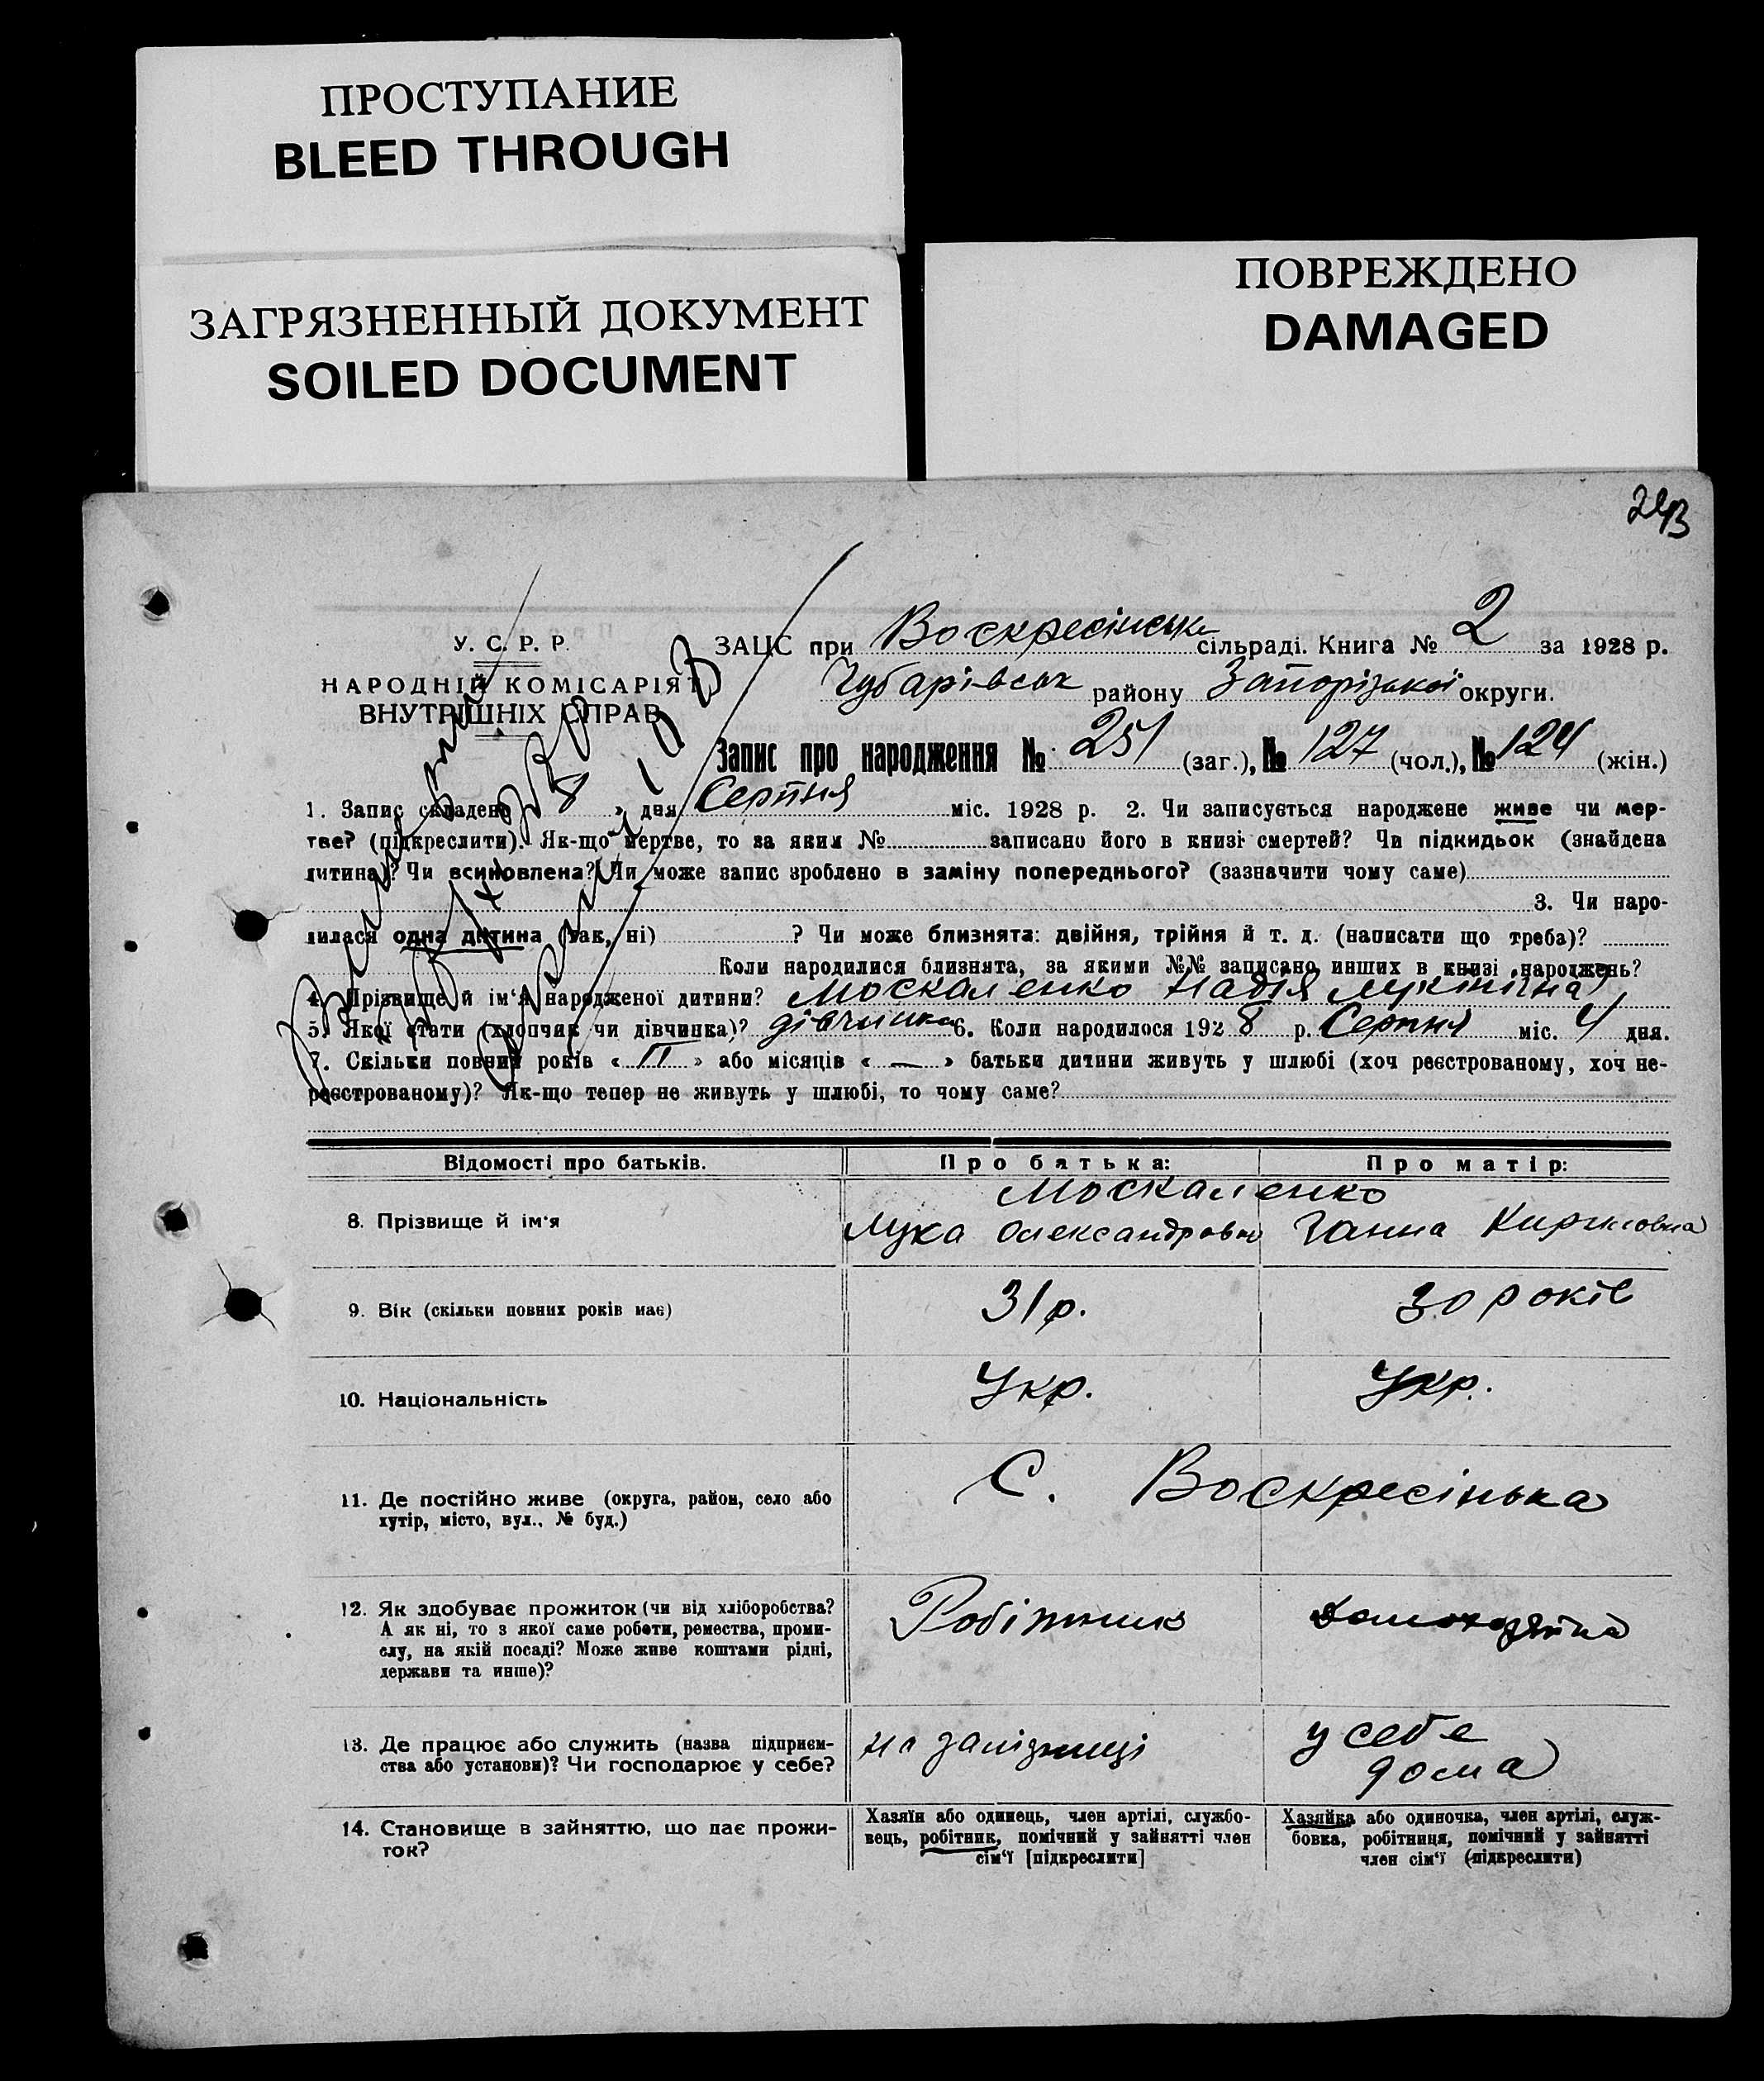 ПРОСТУПАНИЕ
BLEED THROUGH
ЗАГРЯЗНЕННЫЙ ДОКУМЕНТ
SOILED DOCUMENT
ПОВРЕЖДЕНО
DAMAGED
У. С. Р. Р.
НАРОДНІЙ КОМІСАРІЯТ
ВНУТРІШНІХ СПРАВ
ЗАЦС при Воскресінськ сільраді. Книга № 2 за 1928 р.
Чубарівськ району Запорізької округи.
Запис про народження № 251 (заг.), № 127 (чол.), № 124 (жін.)
1. Запис складено 8 » дня Серпня міс. 1928 р. 2. Чи записується народжене живе чи мер-
тве? (підкреслити). Як-що мертве, то за яким № записано його в книзі смертей? Чи підкидьок (знайдена
дитина)? Чи всиновлена? Чи може запис зроблено в заміну попереднього? (зазначити чому саме)
3. Чи наро-
дилася одна дитина (так, ні) ? Чи може близнята: двійня, трійня й т. д. (написати що треба)?
Коли народилися близнята, за якими №№ записано инших в книзі народжень?
4. Прізвище й ім'я народженої дитини? Москаленко Надія Лукінічна
5. Якої стати (хлопчик чи дівчинка)? дівчинка 6. Коли народилося 1928 р. Серпня міс. 4 дня.
7. Скільки повних років « » або місяців « — » батьки дитини живуть у шлюбі (хоч реєстрованому, хоч не-
реєстрованому)? Як-що тепер не живуть у шлюбі, то чому саме?
Відомості про батьків. Про батька: Про матір:
Москаленко
8. Прізвище й ім'я Лука Олександрович Ганна Кириловна
9. Вік (скільки повних років має) 31 р. 30 років
10. Національність Укр. Укр.
11. Де постійно живе (округа, район, село або С. Воскресінька
хутір, місто, вул., № буд.)
12. Як здобуває прожиток (чи від хліборобства? Робітник домохазяйка
А як ні, то з якої саме роботи, ремества, проми-
слу, на якій посаді? Може живе коштами рідні,
держави та инше)?
13. Де працює або служить (назва підприєм- на залізниці у себе
ства або установи)? Чи господарює у себе? дома
14. Становище в зайняттю, що дає прожи- Хазяїн або одинець, член артілі, службо- Хазяйка або одиночка, член артілі, служ-
ток? вець, робітник, помічний у зайнятті член бовка, робітниця, помічний у зайнятті
сім'ї [підкреслити] член сім'ї (підкреслити)